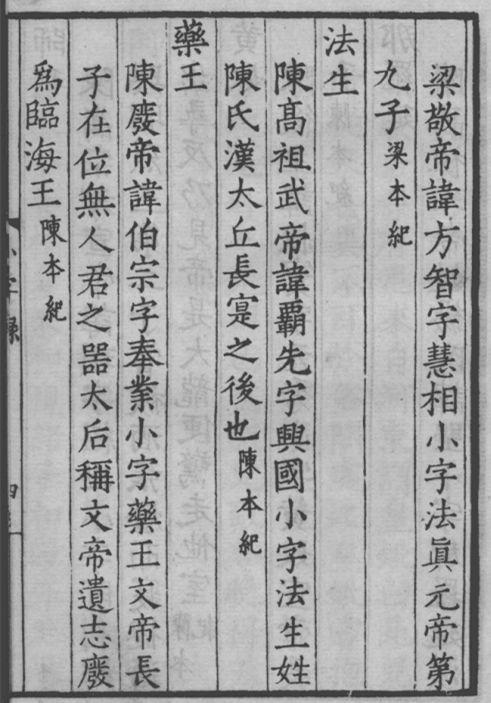 梁敬帝諱方智字慧相小字法眞元帝第
九子梁本紀
法生
陳髙祖武帝諱霸先字興國小字法生姓
陳氏漢太丘長寔之後也陳本紀
藥王
陳廢帝諱伯宗字奉業小字藥王文帝長
子在位無人君之噐太后稱文帝遺志廢
爲臨海王陳本紀
小字錄